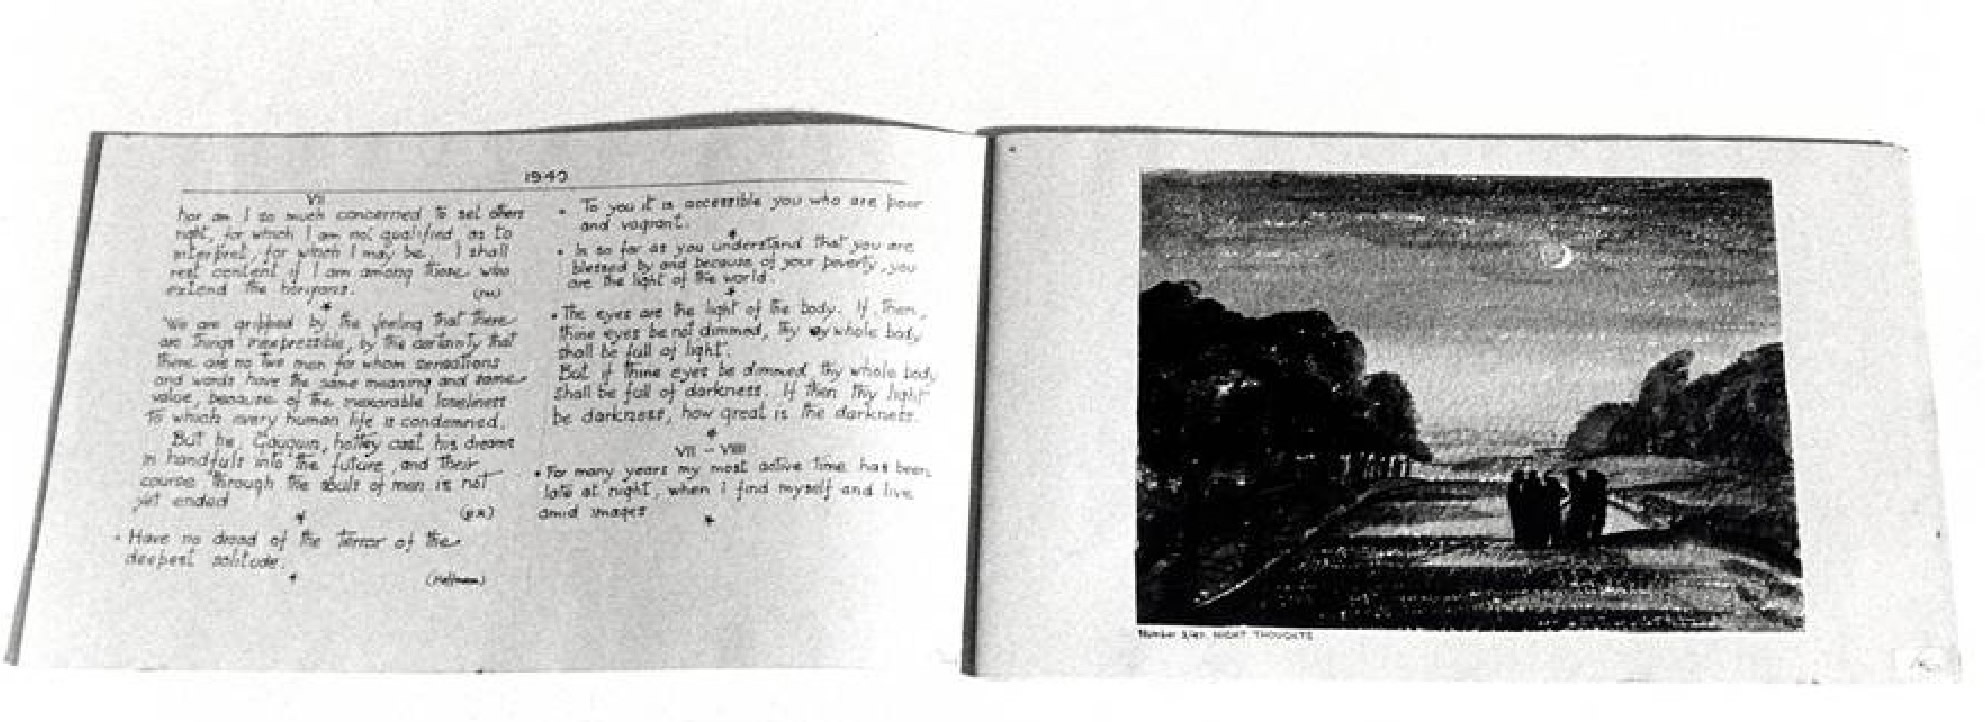 1942
VII
nor am I so much concerned to set others
right, for which I am not qualified as to
interpret, for which I may be. I shall
rest content if I am among those who
extend the horizons.
*
We are gripped by the feeling that there
are things inexpressible, by the certainty that
there are no two men for whom sensations
and words have the same meaning and same
value, because of the inexorable loneliness
to which every human life is condemned.
But he, Gauguin, hotley cast his dreams
in handfuls into the future, and their
course through the souls of men is not
yet ended
*
• Have no dread of the terror of the
deepest solitude.
*
• To you it is accessible you who are poor
and vagrant.
*
• In so far as you understand that you are
blessed by and because of your poverty, you
are the light of the world.
*
• The eyes are the light of the body. If, then,
thine eyes be not dimmed, thy whole body
shall be full of light.
But if thine eyes be dimmed, thy whole body
shall be full of darkness. If then thy light
be darkness, how great is the darkness.
*
VII – VIII
• For many years my most active time has been
late at night, when I find myself and live
amid images
*
NIGHT THOUGHTS